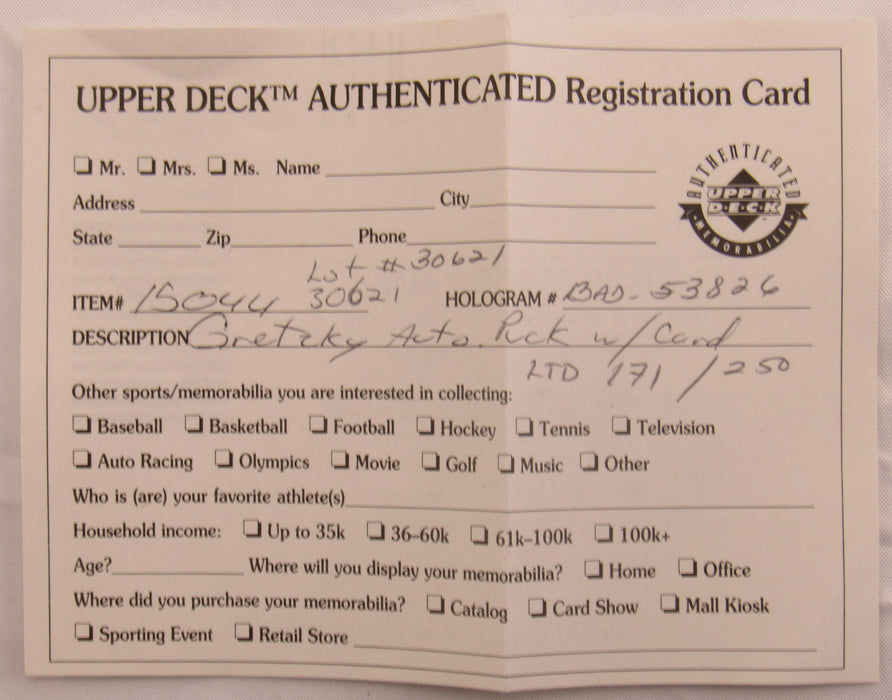 UPPER DECK™ AUTHENTICATED Registration Card
☐ Mr. ☐ Mrs. ☐ Ms. Name
AUTHENTICATED
UPPER
DECK
MEMORABILIA
Address City
State Zip Phone
Lot # 30621
ITEM# 15044 30621 HOLOGRAM # BAD-53826
DESCRIPTION Gretzky Auto. Puck w/ Card
LTD 171 / 250
Other sports/memorabilia you are interested in collecting:
☐ Baseball ☐ Basketball ☐ Football ☐ Hockey ☐ Tennis ☐ Television
☐ Auto Racing ☐ Olympics ☐ Movie ☐ Golf ☐ Music ☐ Other
Who is (are) your favorite athlete(s)
Household income: ☐ Up to 35k ☐ 36–60k ☐ 61k–100k ☐ 100k+
Age? Where will you display your memorabilia? ☐ Home ☐ Office
Where did you purchase your memorabilia? ☐ Catalog ☐ Card Show ☐ Mall Kiosk
☐ Sporting Event ☐ Retail Store